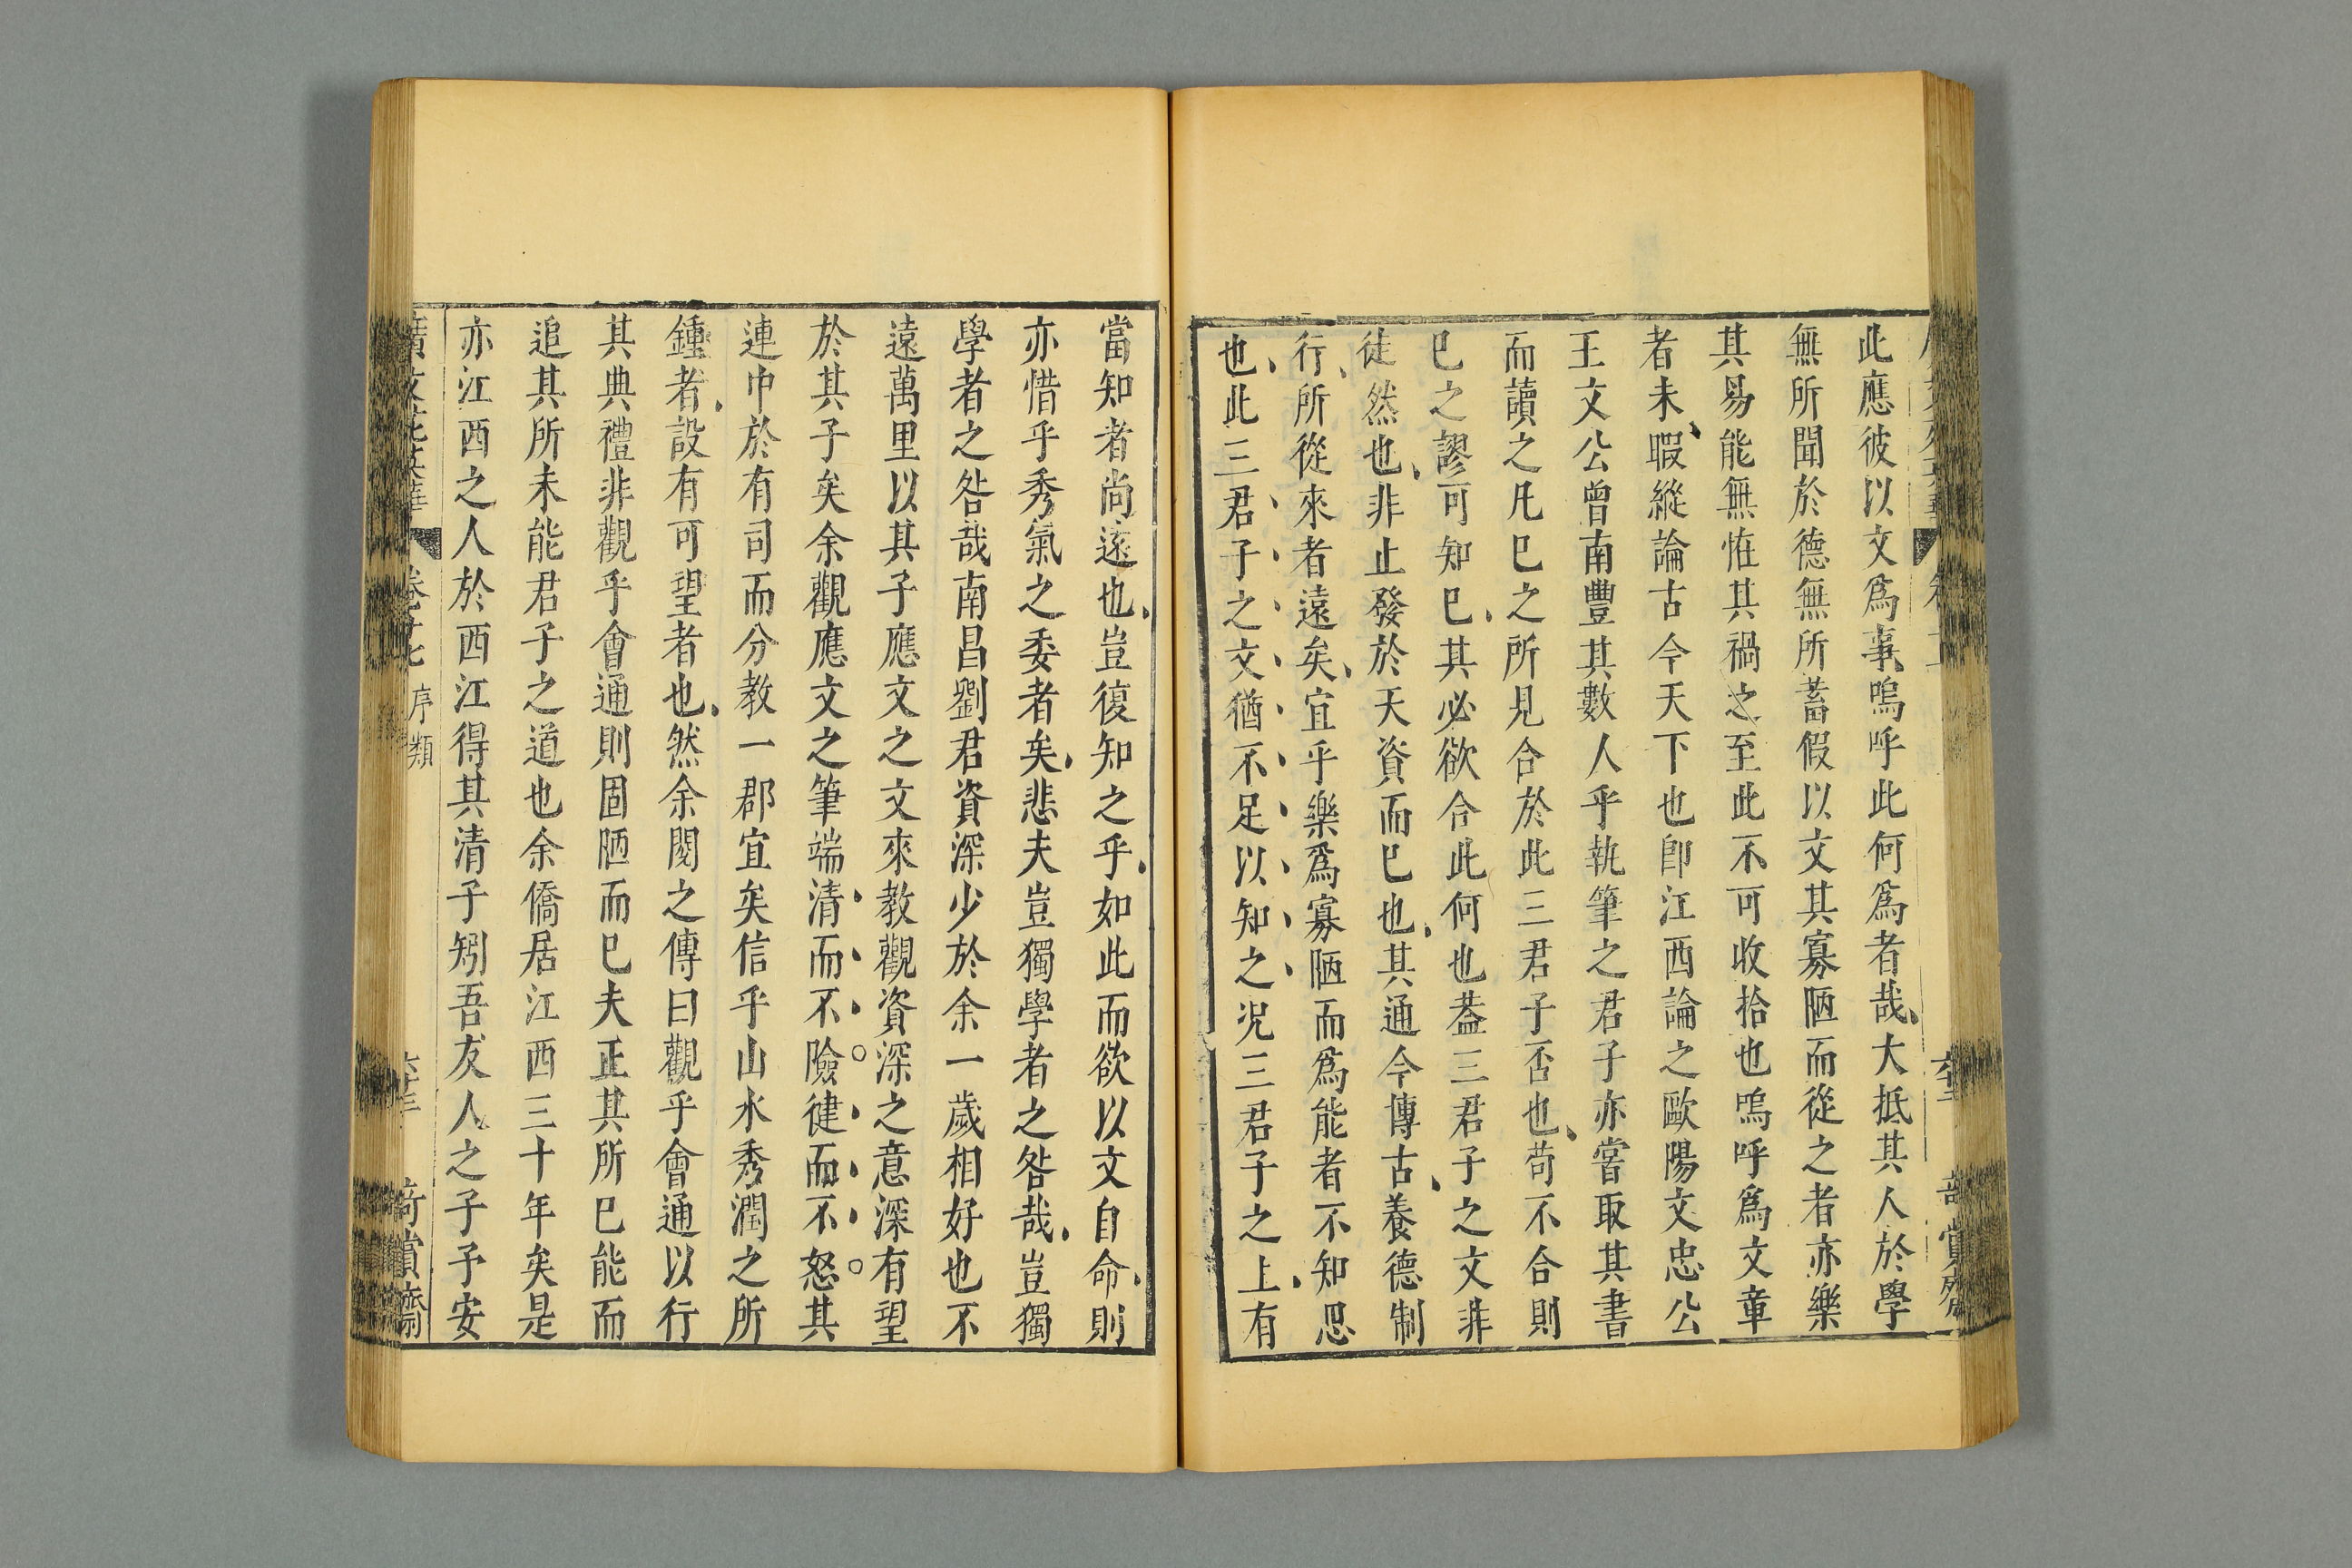 此應彼以文爲事嗚呼此何爲者哉大抵其人於學
無所聞於德無所蓄假以文其寡陋而從之者亦樂
其易能無恠其禍之至此不可收拾也嗚呼爲文章
者未暇縱論古今天下也卽江西論之歐陽文忠公
王文公曾南豐其數人乎執筆之君子亦嘗取其書
而讀之凡巳之所見合於此三君子否也苟不合則
巳之謬可知巳其必欲合此何也葢三君子之文非
徒然也非止發於天資而巳也其通今博古養德制
行所從來者遠矣宜乎樂爲寡陋而爲能者不知思
也此三君子之文猶不足以知之況三君子之上有
當知者尚遠也豈復知之乎如此而欲以文自命則
亦惜乎秀氣之委者矣悲夫豈獨學者之咎哉豈獨
學者之咎哉南昌劉君資深少於余一歲相好也不
遠萬里以其子應文之文來教觀資深之意深有望
於其子矣余觀應文之筆端清而不險徤而不怒其
連中於有司而分教一郡宜矣信乎山水秀潤之所
鍾者設有可望者也然余閱之傳曰觀乎會通以行
其典禮非觀乎會通則固陋而巳夫正其所巳能而
追其所未能君子之道也余僑居江西三十年矣是
亦江西之人於西江得其清子矧吾友人之子予安
廣文苑英華
序類